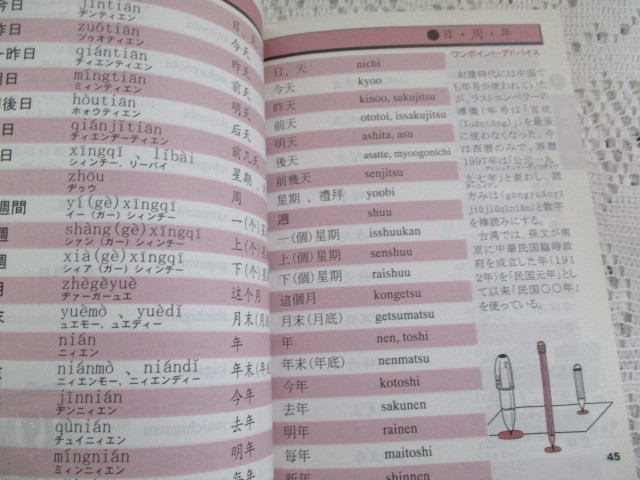 今日 jīntiān
ヂンティエン
昨日 zuótiān
ヅゥオティエン
一昨日 qiántiān
チィエンティエン
明日 míngtiān
ミィンティエン
明後日 hòutiān
ホォウティエン
qiánjǐtiān
チィエンヂーティエン
xīngqī 、lǐbài
シィンチー、リーバイ
zhōu
ヂョウ
週間 yí(gè)xīngqī
イー（ガー）シィンチー
週 shàng(gè)xīngqī
シァン（ガー）シィンチー
週 xià(gè)xīngqī
シィア（ガー）シィンチー
月 zhègèyuè
ヂァーガーユエ
末 yuèmò 、yuèdǐ
ユエモー、ユエディー
nián
ニィエン
niánmò 、niándǐ
ニィエンモー、ニィエンディー
jīnnián
ヂンニィエン
qùnián
チュイニィエン
míngnián
ミィンニィエン
日、天
今天
昨天
前天
明天
后天
前几天
星期、
周
一(个)
上(个)
下(个)
这个月
月末(月
年
年末(年
今年
去年
明年
每年
●日・周・年
日、天 nichi
今天 kyoo
昨天 kinoo, sakujitsu
前天 ototoi, issakujitsu
明天 ashita, asu
後天 asatte, myoogonichi
前幾天 senjitsu
星期 、禮拜 yoobi
週 shuu
一(個)星期 isshuukan
上(個)星期 senshuu
下(個)星期 raishuu
這個月 kongetsu
月末(月底) getsumatsu
年 nen, toshi
年末(年底) nenmatsu
今年 kotoshi
去年 sakunen
明年 rainen
每年 maitoshi
新年 shinnen
ワンポイント・アドバイス
封建時代には中国で
も年号が使われていた
が、ラストエンペラー
博儀（年号は「宣統
(Xuāntǒng)」）を最後
に使わなくなった。今
は西暦のみです。西暦
1997年は「公元一九
九七年」と表わし、読
み方は(gōngyuányī
jiǔjiǔqīnián)と数字
を棒読みにする。
台湾では、孫文が南
京に中華民国臨時政
府を成立した年(191
2年)を「民国元年」とし
て以来「民国〇〇年」
を使っている。
45